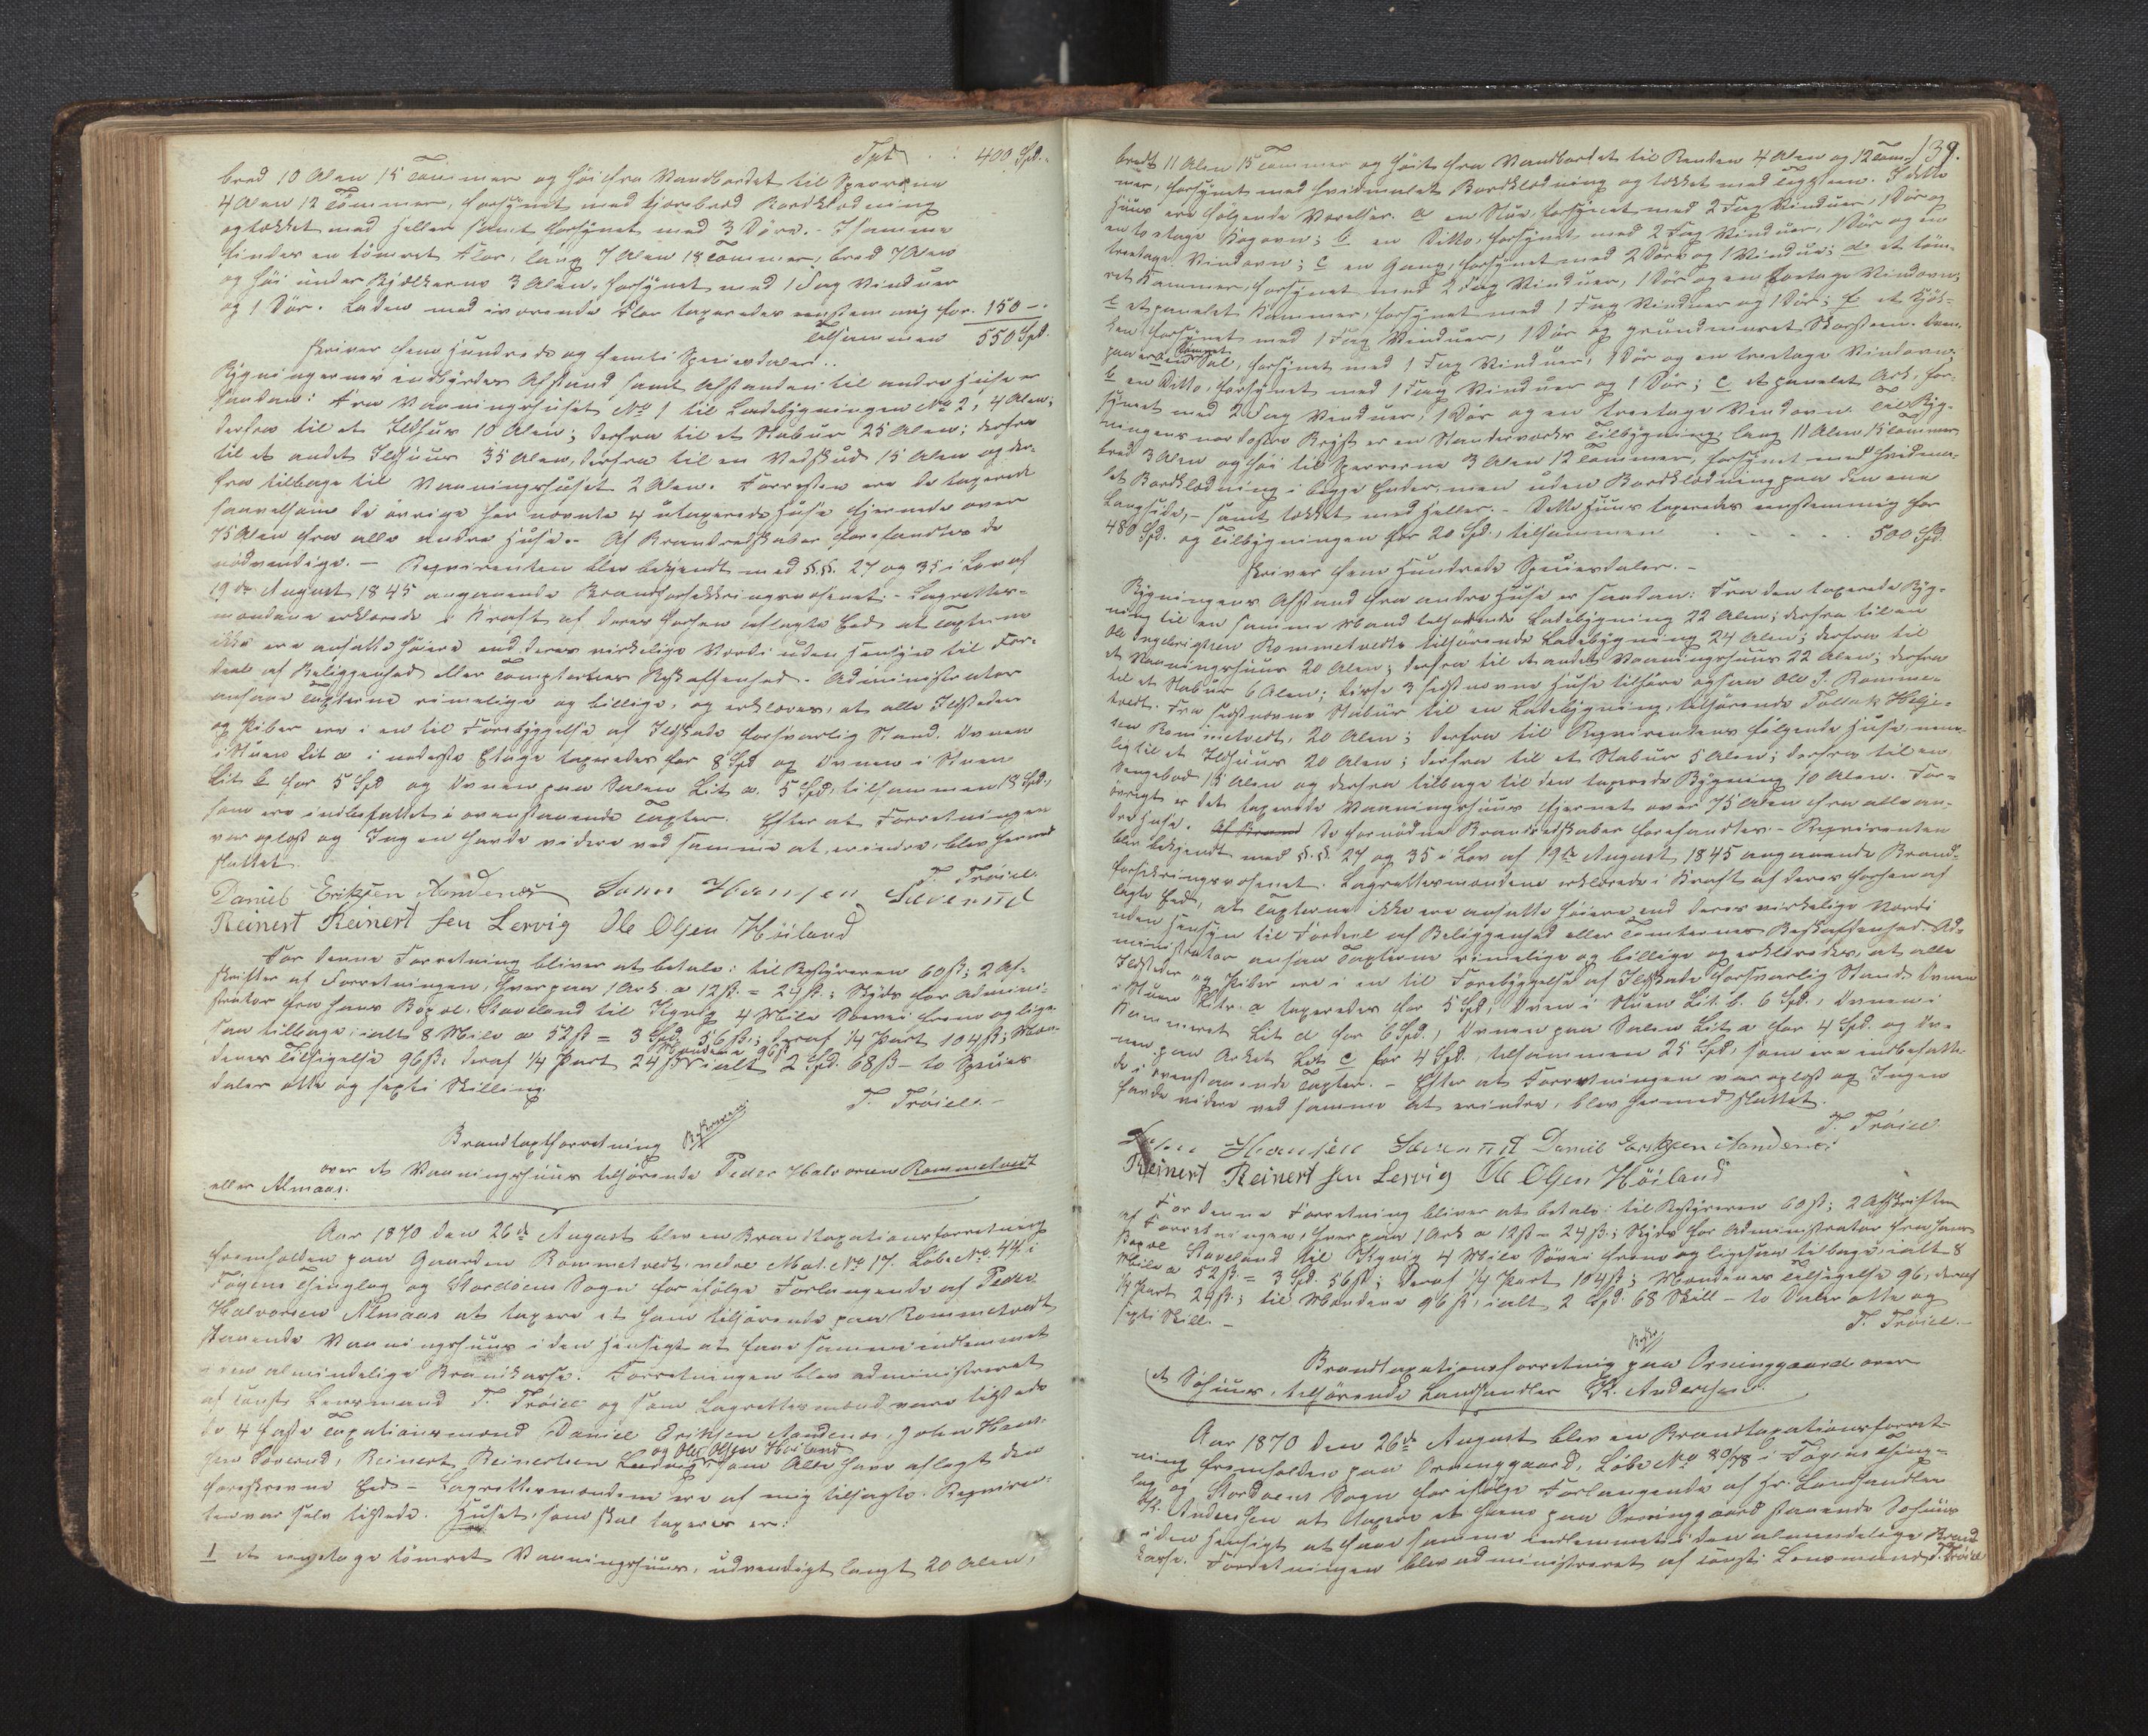 Tpt. . : 400 Spd.
bred 10 Alen 15 Tommer og høi fra Vandbordet til Sperrene
4 Alen 12 Tommer, forsynet med tjærebred Bordklædning
og tækket med Heller samt forsynet med 3 Døre. - I samme
findes en tømret Flor, lang 7 Alen 18 Tommer, bred 7 Alen
og høi under Bjælkerne 3 Alen, forsynet med 1 Fag Vinduer
og 1 Dør. Laden med iværende Flor taxeredes eenstemmig for. 150 -
Tilsammen 550 Spd.
skriver fem Hundrede og femti Speciesdaler..
Bygningernes indbyrdes Afstand samt Afstanden til andre Huse er
saadan: Fra Vaaningshuset No 1 til Ladebygningen No 2, 4 Alen;
derfra til et Ildhuus 10 Alen; derfra til et Stabuur 25 Alen; derfra
til et andet Ildhuus 35 Alen, derfra til en Vedskud 15 Alen og der-
fra tilbage til Vaaningshuset 2 Alen. Forresten ere de taxerede
saavelsom de øvrige her nævnte 4 utaxerede Huse fjernede over
75 Alen fra alle andre Huse. - Af Brandredskaber forefandtes de
nødvendige. - Reqvirenten blev bekjendt med §.§. 27 og 35 i Lov af
19de August 1845 angaaende Brandforsikkringsvæsenet. - Lagrettes-
mændene erklærede i Kraft af deres forhen aflagte Eed at Taxterne
ikke ere ansatte høiere end deres virkelige Værdi uden Hensyn til For-
deel af Beliggenhed eller Tomternes Beskaffenhed. - Administrator
ansaae Taxterne rimelige og billige, og erklæres, at alle Ildsteder
og Piber ere i en til Forebyggelse af Ildskade forsvarlig Stand. Ovnen
i Stuen Lit a i nederste Etage taxeredes for 8 Spd og Ovnen i Stuen
Lit b for 5 Spd og Ovnen paa Salen Lit a. 5 Spd, tilsammen 18 Spd,
som ere indbefattet i ovenstaaende Taxter. Efter at Forretningen
var oplæst og Ingen havde videre ved samme at erindre, blev hermed
sluttet.
T. Trøien.
Daniel Eriksen Aandenæs John Hansen Sæverud
Reinert Reinertsen Lervig Ole Olsen Høiland
For denne Forretning bliver at betale: til Bestyreren 60 ß; 2 Af-
skrifter af Forretningen, hver paa 1 Ark a 12 ß. = 24 ß.; Skyds for Admini-
strator fra hans Bopæl Staveland til 4 Mile Søvei frem og lige
saa tilbage, ialt 8 Mile a 52 ß = 3 Spd. 56 ß.; deraf 1/4 Part 104 ß; Mæn-
denes Tilsigelse 96 ß, deraf 1/4 Part 24 ß Mændene 96 ß ialt 2 Spd. 68 ß - to Species-
daler otte og sexti Skilling.
T. Trøien. -
Brandtaxtforretning Beskreven
over et Vaaningshuus tilhørende Peder Halvorsen Rommetvedt
eller Almaas.
Aar 1870 den 26de August blev en Brandtaxationsforretning
fremholden paa Gaarden Rommetvedt nedre Mat. No 17. Løbe No. 44 i
Føyens Thinglag og Stordøens Sogn for ifølge Forlangende af Peder
Halvorsen Almaas at taxere et ham tilhørende paa Rommetvedt
staaende Vaaningshuus i den Hensigt at faae samme indlemmet
i den almindelige Brandkasse. Forretningen blev administreret
af const. Lensmand T. Trøien og som Lagrettesmænd vare tilstede
de 4 faste Taxationsmænd Daniel Eriksen Aandenæs, John Han-
sen Sæverud, Reinert Reinertsen Lervig og Ole Olsen Høiland som Alle have aflagt den
foreskrevne Eed. - Lagrettesmændene ere af mig tilsagte. Reqviren-
ten var selv tilstede. Huset som skal taxeres er:
1 et eenetages tømret Vaaningshuus, udvendigt langt 20 Alen,
139.
bredt 11 Alen 15 Tommer og høit fra Vandbordet til Randen 4 Alen og 12 Tom-
mer, forsynet med hvidmalet Bordklædning og tækket med Teglsteen. I dette
Huus ere følgende Værelser. a en Stue, forsynet med 2 Fag Vinduer, 1 Dør og
en toetages Kogovn; b en Ditto, forsynet med 2 Fag Vinduer, 1 Dør og en
treetages Vindovn; c en Gang, forsynet med 2 Døre og 1 Vindue; d et tøm-
ret Kammer, forsynet med 2 Fag Vinduer, 1 Dør og en toetages Vindovn;
e et panelet Kammer, forsynet med 1 Fag Vinduer og 1 Dør; f et Kjøk-
ken, forsynet med 1 Fag Vinduer, 1 Dør og grundmuret Skorsteen. Oven-
paa er a en tømret Sal, forsynet med 1 Fag Vinduer, 1 Dør og en treetages Vindovn;
b en Ditto, forsynet med 1 Fag Vinduer og 1 Dør; c et panelet Ark, for-
synet med 2 Fag Vinduer, 1 Dør og en treetages Vindovn. Til Byg-
ningens nordøstre Bryst er en Standerværks Tilbygning, lang 11 Alen 15 Tommer,
bred 3 Alen og høi til Sperrerne 3 Alen 12 Tommer, forsynet med hvidma-
let Bordklædning i begge Ender, men uden Bordklædning paa den ene
Langside, - samt tækket med Heller. - Dette Huus taxeredes eenstemmig for
480 Spd. og Tilbygningen for 20 Spd., tilsammen . . . . . 500 Spd.
skriver fem Hundrede Speciesdaler. -
Bygningens Afstand fra andre Huse er saadan: Fra den taxerede Byg-
ning til en samme Mand tilhørende Ladebygning 22 Alen; derfra til en
Ole Ingebrigtsen Rommetvedt tilhørende Ladebygning 24 Alen; derfra til
et Vaaningshuus 20 Alen; derfra til et andet Vaaningshuus 22 Alen; derfra
til et Stabuur 6 Alen; disse 3 sidstnævnte Huse tilhøre ogsaa Ole I. Romme-
tvedt. Fra sidstnævnte Stabuur til en Ladebygning, tilhørende Tollak Helje-
sen Rommetvedt, 20 Alen; derfra til Reqvirentens følgende Huse, nem-
lig til et Ildhuus 20 Alen; derfra til et Stabuur 5 Alen; derfra til en
Sengebod 15 Alen og derfra tilbage til den taxerede Bygning 10 Alen. For-
øvrigt er det taxerede Vaaningshuus fjernet over 75 Alen fra alle an-
dre Huse. Af Brand De fornødne Brandredskaber forefandtes. - Reqvirenten
blev bekjendt med §.§. 27 og 35 i Lov af 19de August 1845 angaaende Brand-
forsikringsvæsenet. Lagrettesmændene erklærede i Kraft af deres forhen af
lagte Eed, at Taxterne ikke ere ansatte høiere end deres virkelige Værdi
uden Hensyn til Fordeel af Beliggenhed eller Tomternes Beskaffenhed. Ad-
ministrator ansaa Taxterne rimelige og billige og erklæredes, at alle
Ildsteder og Piber ere i en til Forebyggelse af Ildskade forsvarlig Stand. Ovnen
i Stuen Litr. a taxeredes for 5 Spd, Ovnen i Stuen Lit. b. 6 Spd., Ovnen i
Kammeret Lit d for 6 Spd., Ovnen paa Salen Lit a for 4 Spd. og Ov-
nen paa Arket Lit c for 4 Spd., tilsammen 25 Spd, som ere indbefatte-
de i ovenstaaende Taxter. - Efter at Forretningen var oplæst og Ingen
havde videre ved samme at erindre, blev hermed sluttet.
T. Trøien
John Hansen Sæverud Daniel Eriksen Aandenæs
Reinert Reinertsen Lervig Ole Olsen Høiland
For denne Forretning bliver at betale: til Bestyreren 60 ß; 2 Afskrifter
af Forretningen, hver paa 1 Ark a 12 ß = 24 ß.; Skyds for Administrator fra hans
Bopæl Staveland til 4 Mile Søvei frem og ligesaa tilbage, ialt 8
Mile a 52 ß. = 3 Spd. 56 ß; deraf 1/4 Part 104 ß; Mændenes Tilsigelse 96, deraf
1/4 Part 24 ß.; til Mændene 96 ß, ialt 2 Spd. 68 Skill - to Daler otte og
sexti Skill. -
T. Trøien. -
Beskr
Brandtaxationsforretning paa Orninggaard over
et Søhuus, tilhørende Landhandler K. Andersen.
Aar 1870 den 26de August blev en Brandtaxationsforret-
ning fremholden paa Orninggaard, Løbe No 20/78 i Føyens Thing-
lag og Stordøens Sogn for ifølge Forlangende af Hr. Landhandler
K. Andersen at taxere et hans paa Orninggaard staaende Søhuus
i den Hensigt at faae samme indlemmet i den almindelige Brand
kasse. Forretningen blev administreret af const. Lensmand T. Trøien